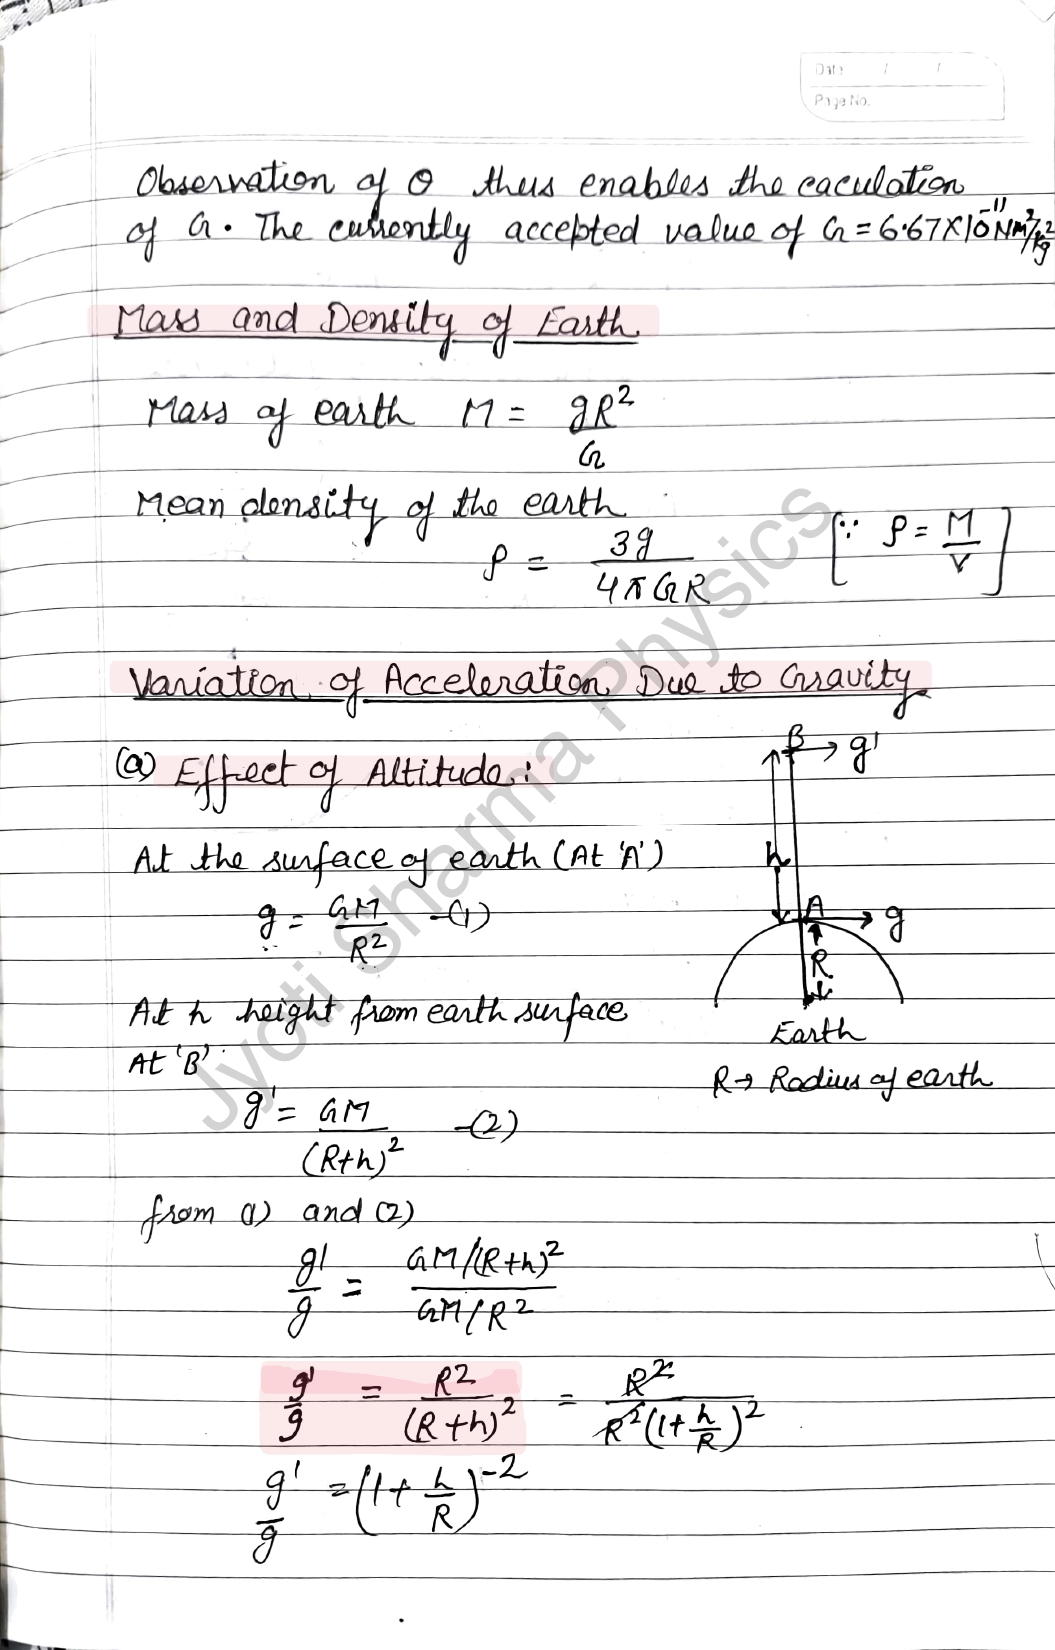 Date / /
Page No.
Observation of θ thus enables the caculation
of G. The currently accepted value of G = 6.67×10⁻¹¹ Nm²/kg²
Mass and Density of Earth
Mass of earth M = gR²/G
Mean density of the earth
ρ = 3g/4πGR [∵ ρ = M/V]
Variation of Acceleration Due to Gravity
(a) Effect of Altitude:
B → g'
At the surface of earth (At 'A')
h
g = GM/R² -(1)
A → g
R
At h height from earth surface
Earth
At 'B'
R → Radius of earth
g' = GM/(R+h)² -(2)
from (1) and (2)
g'/g = GM/(R+h)² / GM/R²
g'/g = R²/(R+h)² = R²/R²(1+h/R)²
g'/g = (1+h/R)⁻²
Jyoti Sharma Physics